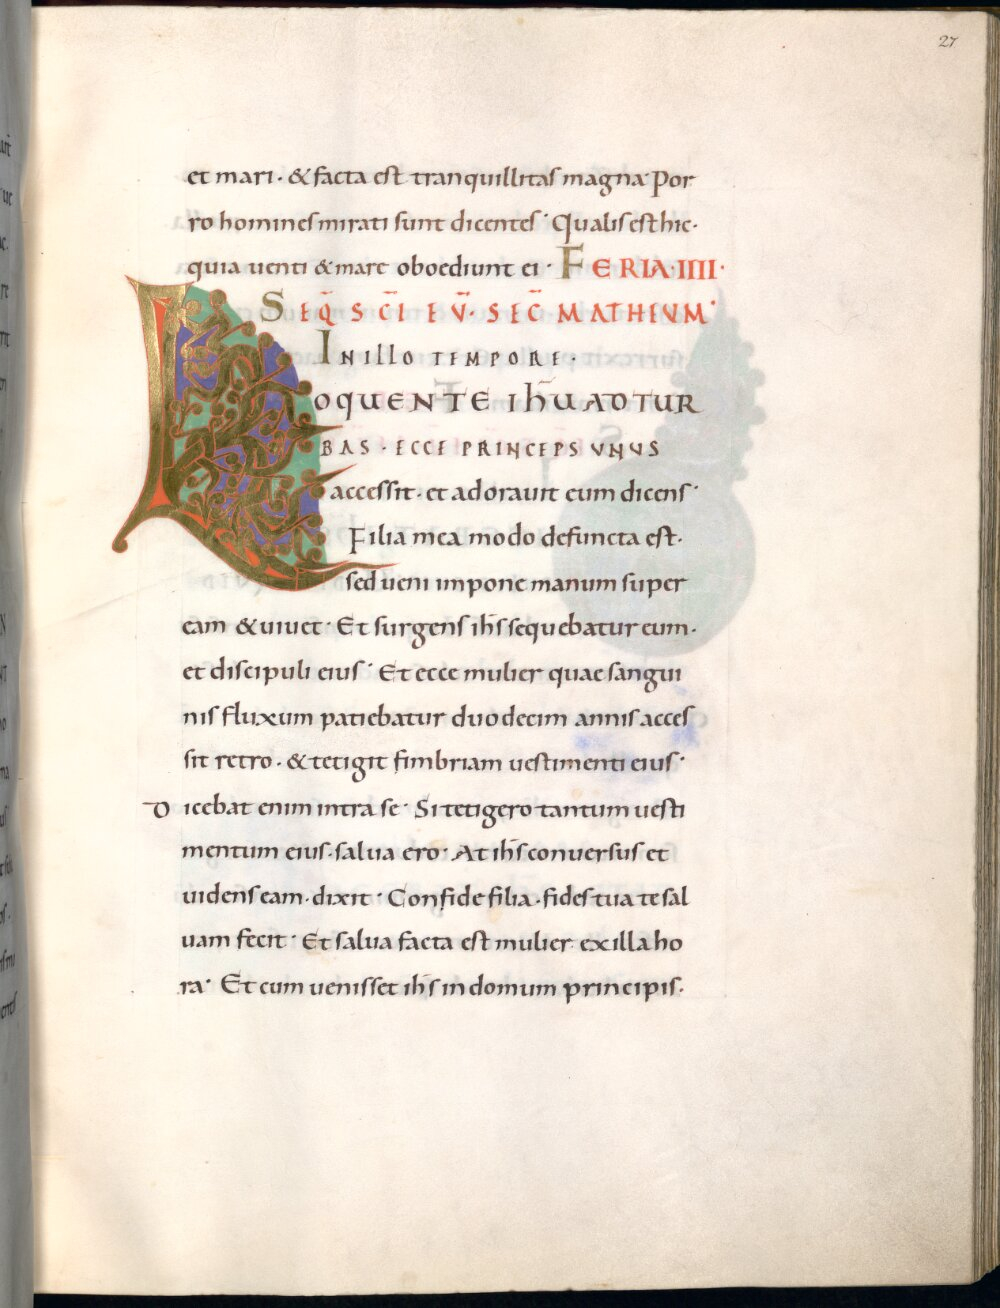 27
et mari · & facta est tranquillitas magna· Por
ro homines mirati sunt dicentes · Qualis est hic·
quia uenti & mare oboediunt ei · FERIA·IIII·
SEQ̄ S C̄I EV̄· SEC̄ MATHEVM·
IN ILLO TEMPORE·
LOQUENTE IH̄U AD TUR
BAS · ECCE PRINCEPS UNUS
accessit · et adorauit eum dicens ·
Filia mea modo defuncta est·
sed ueni impone manum super
eam & uiuet · Et surgens ih̄s sequebatur eum·
et discipuli eius · Et ecce mulier quae sangui
nis fluxum patiebatur duodecim annis acces
sit retro · & tetigit fimbriam uestimenti eius ·
Dicebat enim intra se · Si tetigero tantum uesti
mentum eius · salua ero · At ih̄s conuersus et
uidens eam · dixit · Confide filia · fides tua te sal
uam fecit · Et salua facta est mulier ex illa ho
ra · Et cum uenisset ih̄s in domum principis·